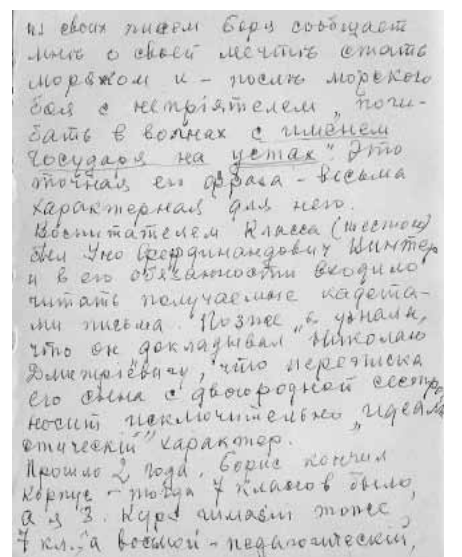 из своих писем Боря сообщает
мнѣ о своей мечтѣ стать
моряком и - послѣ морского
боя с непрiятелем „поги-
бать в волнах с именем
Государя на устах". Это
точная его фраза - весьма
характерная для него.
Воспитателем класса (шестой)
был Уно Фердинандович Винтер
и в его обязанности входило
читать получаемые кадета-
ми письма. Позже я узнал,
что он докладывал Николаю
Дмитрiевичу, что переписка
его сына с двоюродной сестрой
носит исключительно „идеали
стическiй" характер.
Прошло 2 года. Борис кончил
корпус - тогда 7 классов было,
а я 3. Курс гимназ тоже
7 кл., а восьмой - педагогический,